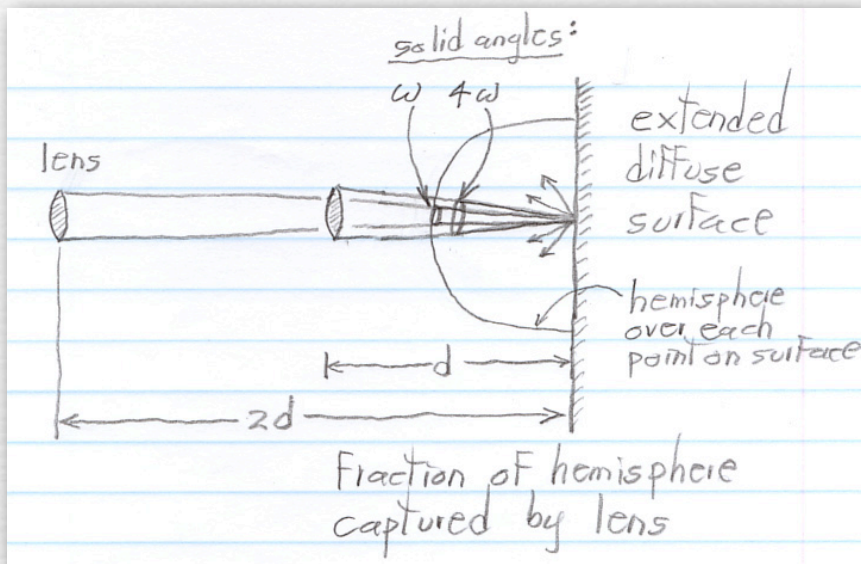 solid angles:
ω 4ω
lens
extended
diffuse
surface
hemisphere
over each
point on surface
d
2d
Fraction of hemisphere
captured by lens